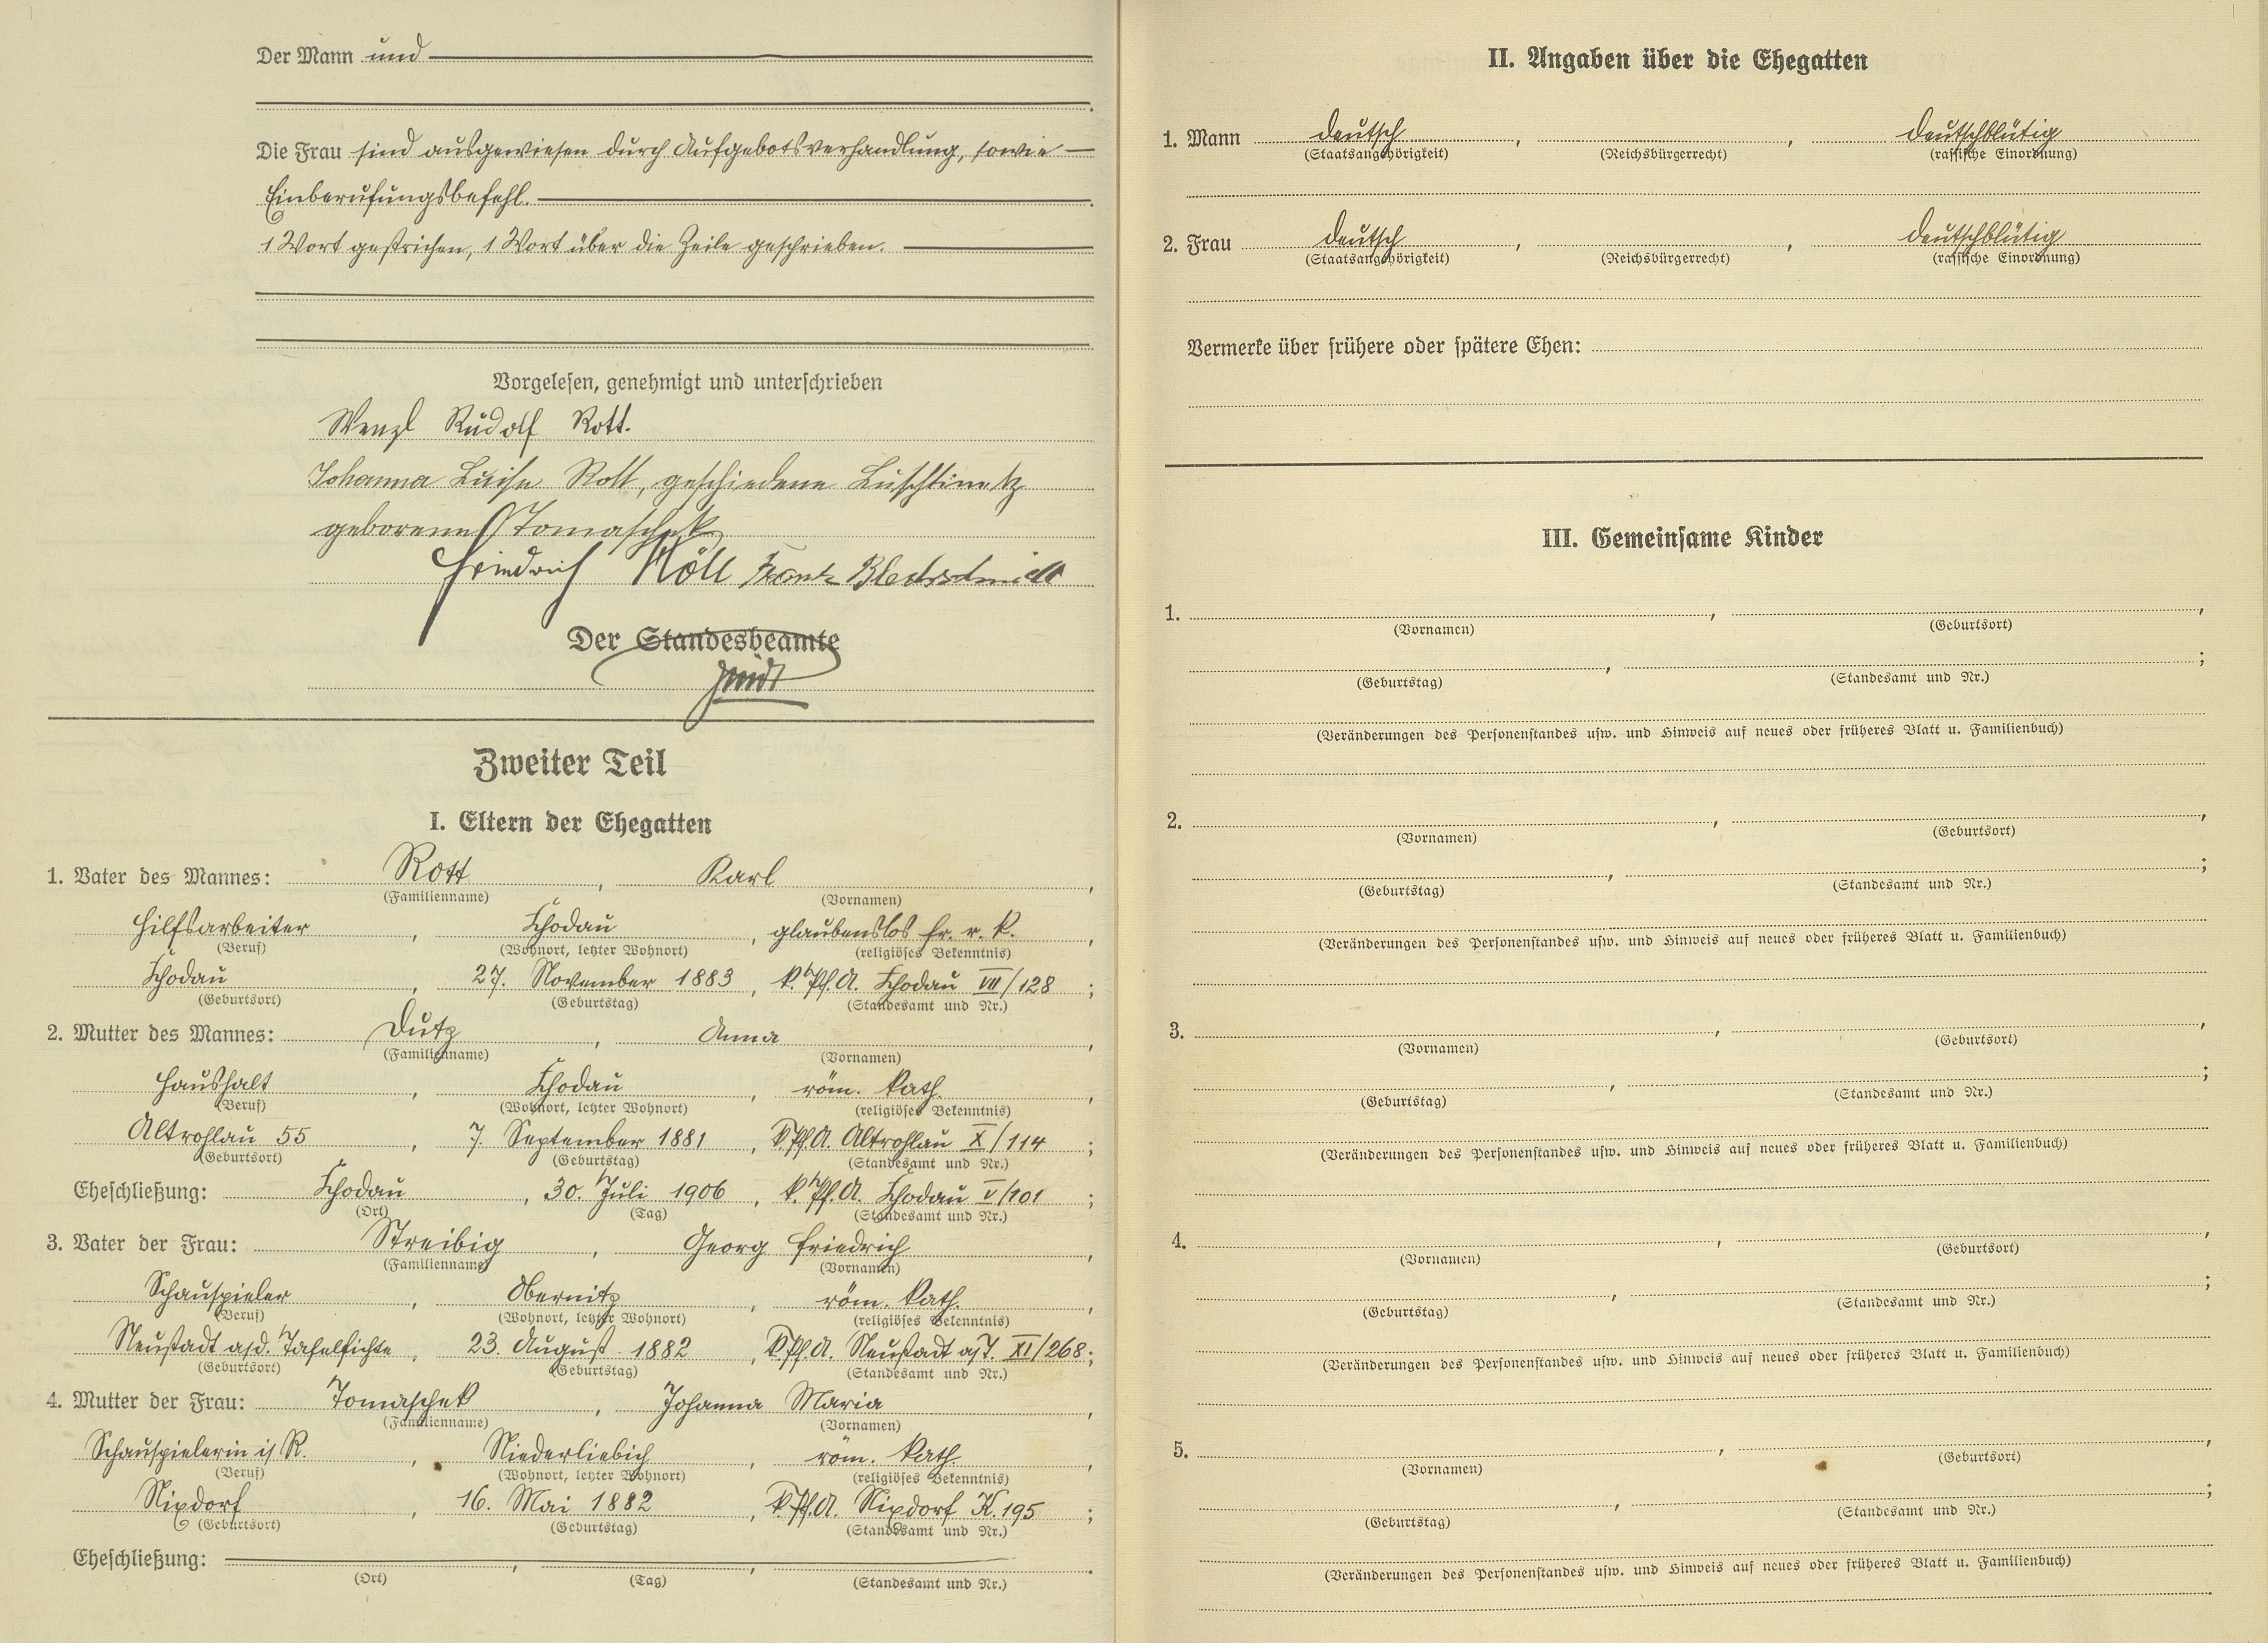 Der Mann und
Die Frau sind ausgewiesen durch Aufgebotsverhandlung, sowie
Einberufungsbefehl.
1 Wort gestrichen, 1 Wort über die Zeile geschrieben.
Vorgelesen, genehmigt und unterschrieben
Wenzl Rudolf Rott.
Johanna Luise Rott, geschiedene Luschtinetz
geborene Tomaschek
Friedrich Köll Frantz Blechschmidt
Der Standesbeamte
Zweiter Teil
I. Eltern der Ehegatten
1. Vater des Mannes: Rott, Karl,
(Familienname) (Vornamen)
Hilfsarbeiter, Chodau, glaubenslos fr. r. k.,
(Beruf) (Wohnort, letzter Wohnort) (religiöses Bekenntnis)
Chodau, 27. November 1883, k. Pf. A. Chodau VII/128;
(Geburtsort) (Geburtstag) (Standesamt und Nr.)
2. Mutter des Mannes: Dutz, Anna,
(Familienname) (Vornamen)
Haushalt, Chodau, röm. kath.,
(Beruf) (Wohnort, letzter Wohnort) (religiöses Bekenntnis)
Altrohlau 55, 7. September 1881, k. Pf. A. Altrohlau X/114;
(Geburtsort) (Geburtstag) (Standesamt und Nr.)
Eheschließung: Chodau, 30. Juli 1906, k. Pf. A. Chodau V/101;
(Ort) (Tag) (Standesamt und Nr.)
3. Vater der Frau: Streibig, Georg Friedrich,
(Familienname) (Vornamen)
Schauspieler, Obernitz, röm. kath.,
(Beruf) (Wohnort, letzter Wohnort) (religiöses Bekenntnis)
Neustadt a/d. Tafelfichte, 23. August 1882, k. Pf. A. Neustadt a/T. XI/268;
(Geburtsort) (Geburtstag) (Standesamt und Nr.)
4. Mutter der Frau: Tomaschek, Johanna Maria,
(Familienname) (Vornamen)
Schauspielerin i/R., Niederliebich, röm. kath.,
(Beruf) (Wohnort, letzter Wohnort) (religiöses Bekenntnis)
Nixdorf, 16. Mai 1882, k. Pf. A. Nixdorf K. 195;
(Geburtsort) (Geburtstag) (Standesamt und Nr.)
Eheschließung: , , .
(Ort) (Tag) (Standesamt und Nr.)
II. Angaben über die Ehegatten
1. Mann deutsch, , deutschblütig
(Staatsangehörigkeit) (Reichsbürgerrecht) (rassische Einordnung)
2. Frau deutsch, , deutschblütig
(Staatsangehörigkeit) (Reichsbürgerrecht) (rassische Einordnung)
Vermerke über frühere oder spätere Ehen:
III. Gemeinsame Kinder
1. , ,
(Vornamen) (Geburtsort)
, ;
(Geburtstag) (Standesamt und Nr.)
(Veränderungen des Personenstandes usw. und Hinweis auf neues oder früheres Blatt u. Familienbuch)
2. , ,
(Vornamen) (Geburtsort)
, ;
(Geburtstag) (Standesamt und Nr.)
(Veränderungen des Personenstandes usw. und Hinweis auf neues oder früheres Blatt u. Familienbuch)
3. , ,
(Vornamen) (Geburtsort)
, ;
(Geburtstag) (Standesamt und Nr.)
(Veränderungen des Personenstandes usw. und Hinweis auf neues oder früheres Blatt u. Familienbuch)
4. , ,
(Vornamen) (Geburtsort)
, ;
(Geburtstag) (Standesamt und Nr.)
(Veränderungen des Personenstandes usw. und Hinweis auf neues oder früheres Blatt u. Familienbuch)
5. , ,
(Vornamen) (Geburtsort)
, ;
(Geburtstag) (Standesamt und Nr.)
(Veränderungen des Personenstandes usw. und Hinweis auf neues oder früheres Blatt u. Familienbuch)